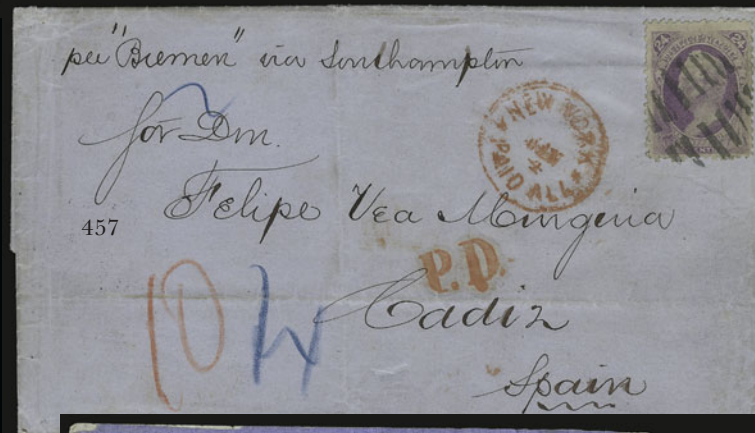 per "Bremen" via Southampton
24
NEW YORK
JAN
4
PAID ALL
för Dm.
Felipe Vea Murguia
457
P.D.
10
Cadiz
Spain